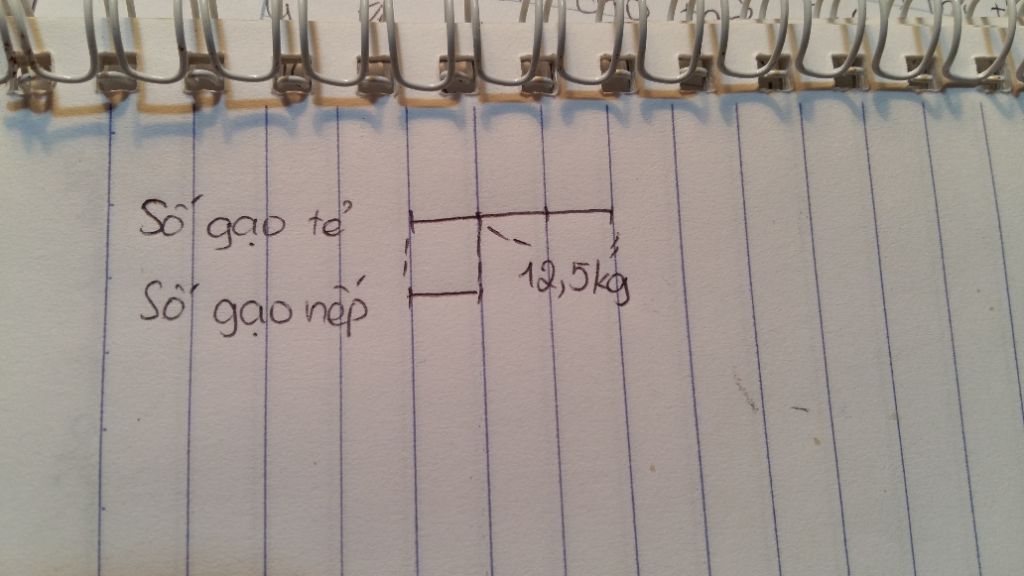 Số gạo tẻ
12,5kg
Số gạo nếp